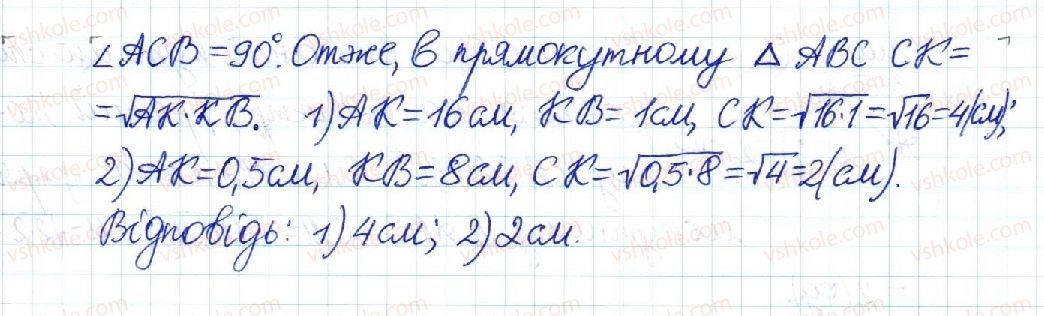 ∠ACB=90°. Отже, в прямокутному △ ABC CK=
=√AK·KB. 1) AK=16см, KB=1см, CK=√16·1=√16=4(см);
2) AK=0,5см, KB=8см, CK=√0,5·8=√4=2(см).
Відповідь: 1) 4см; 2) 2см.